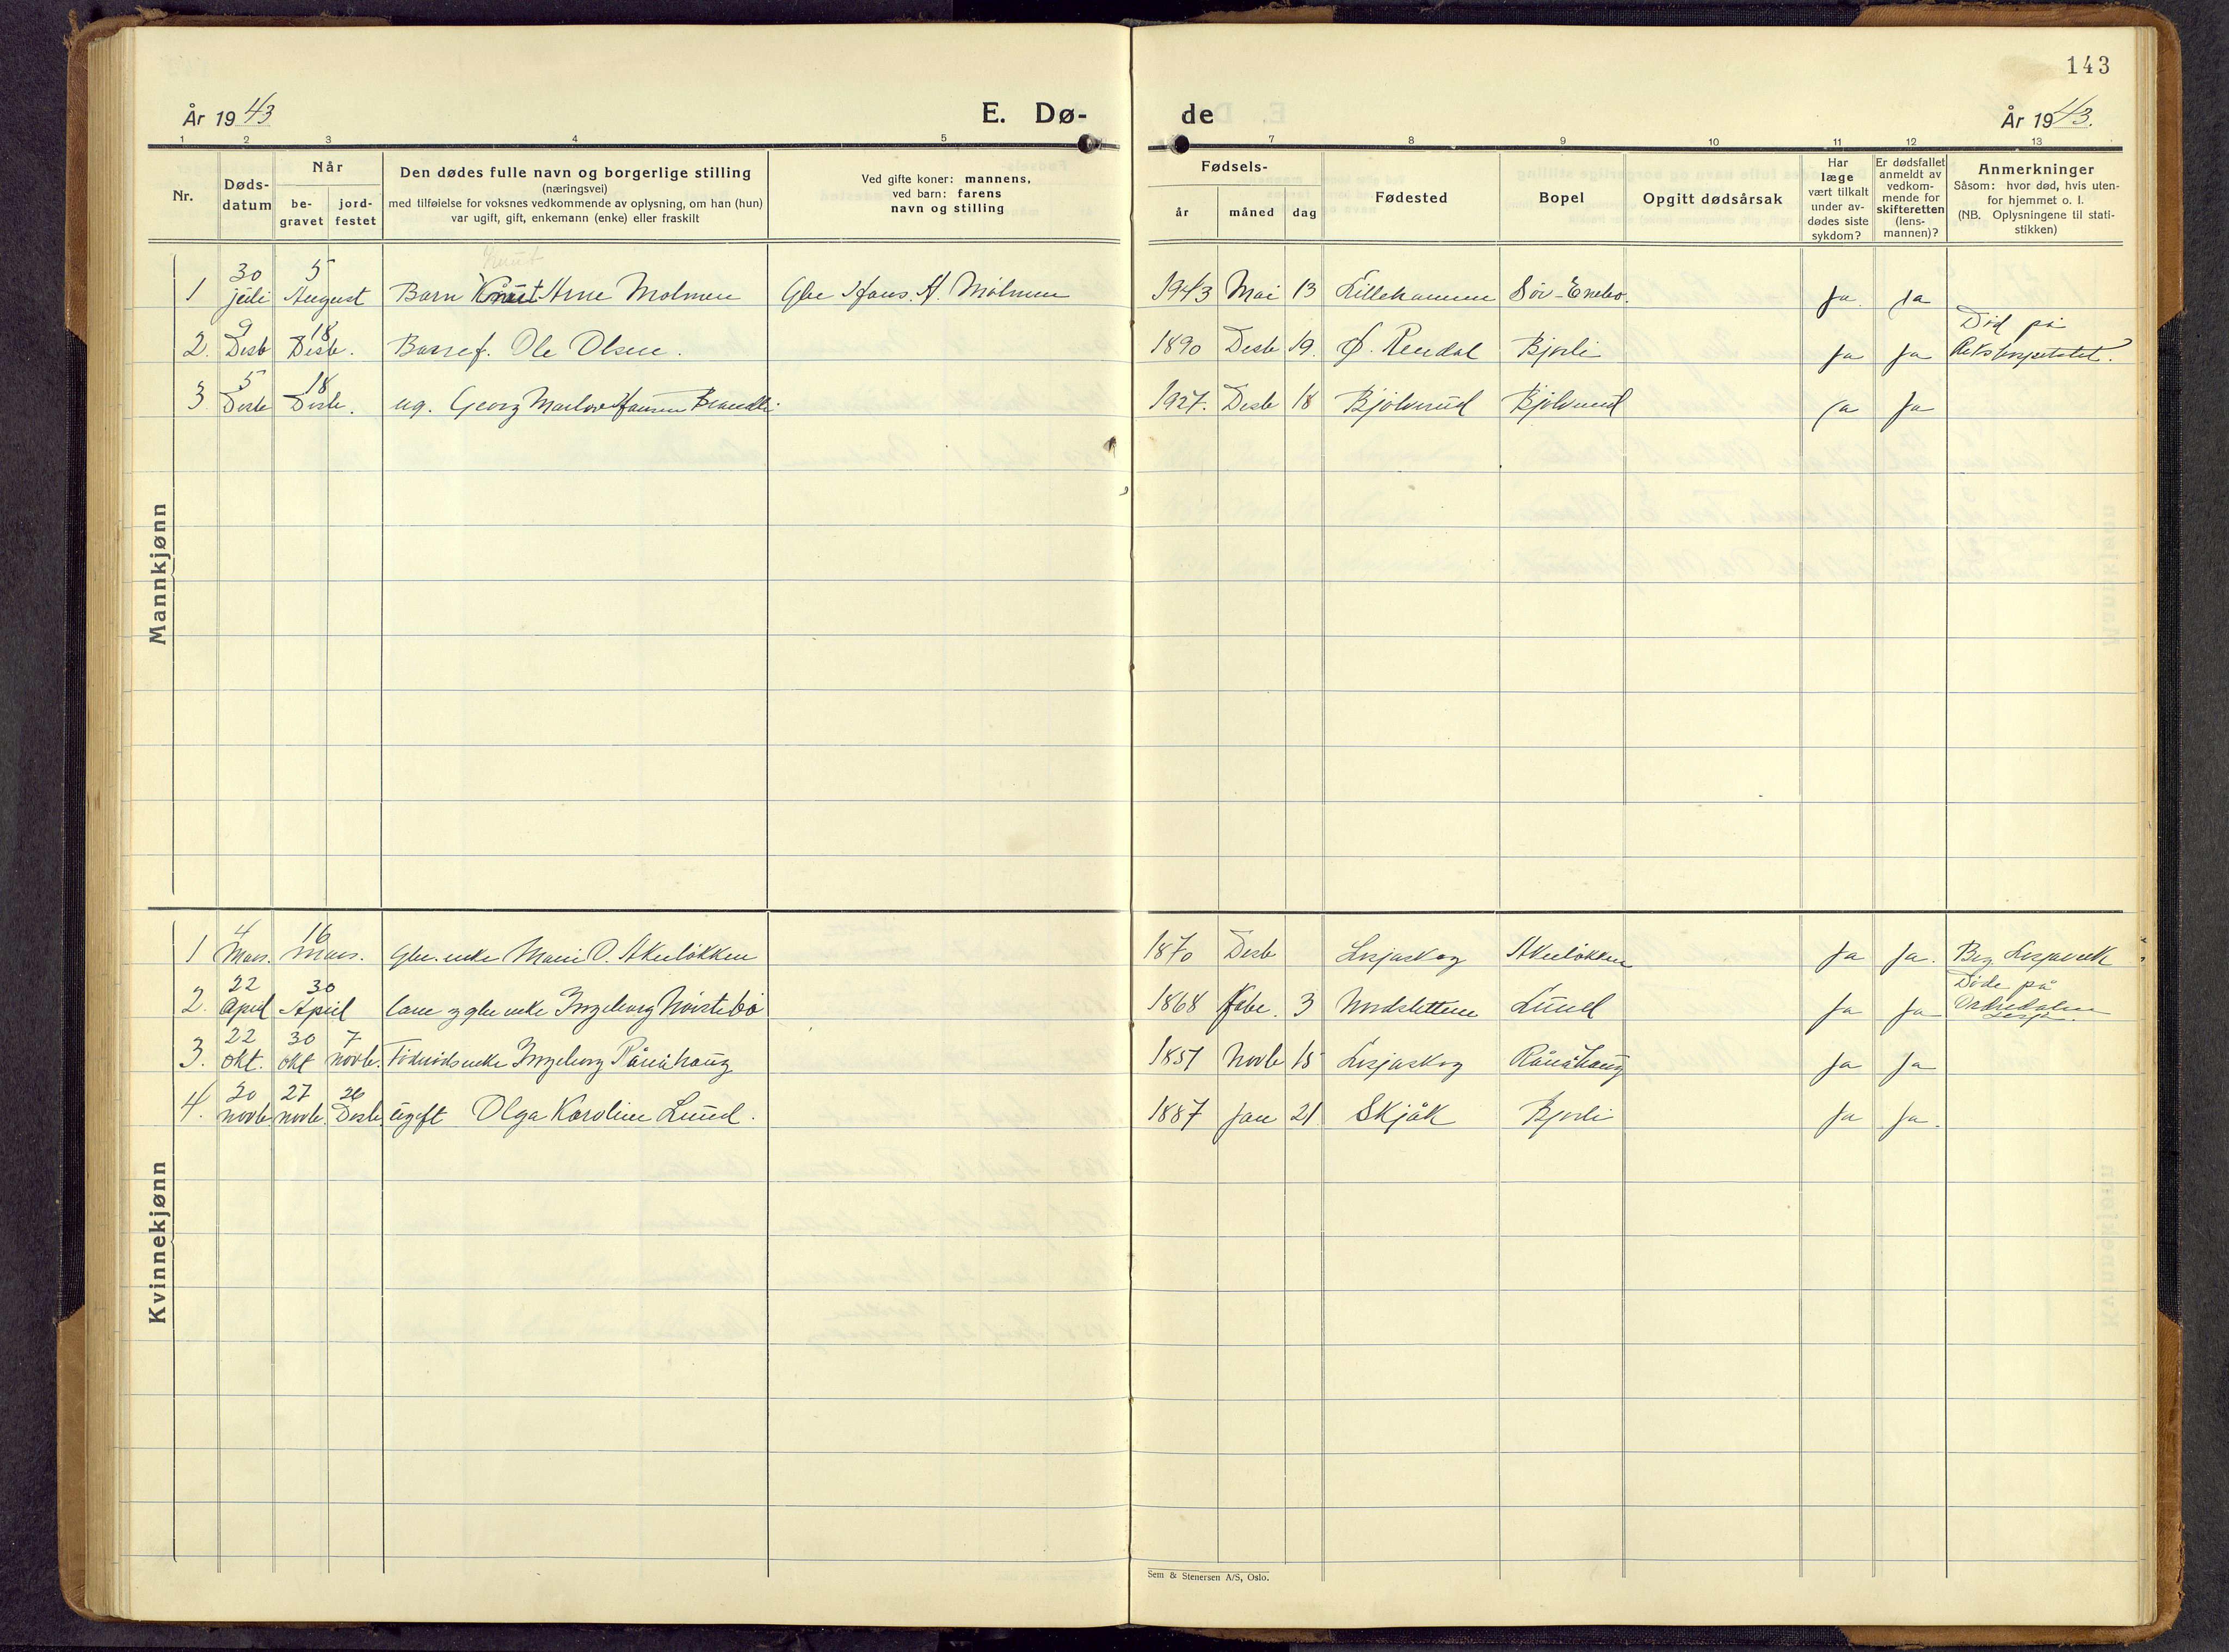 143
År 1943
E. Dø-
de
År 1943.
1 2 3 4 5 7 8 9 10 11 12 13
Nr.
Døds-
datum
Når
be-
gravet
jord-
festet
Den dødes fulle navn og borgerlige stilling
(næringsvei)
med tilføielse for voksnes vedkommende av oplysning, om han (hun)
var ugift, gift, enkemann (enke) eller fraskilt
Ved gifte koner: mannens,
ved barn: farens
navn og stilling
Fødsels-
år måned dag
Fødested
Bopel
Opgitt dødsårsak
Har
læge
vært tilkalt
under av-
dødes siste
sykdom?
Er dødsfallet
anmeldt av
vedkom-
mende for
skifteretten
(lens-
mannen)?
Anmerkninger
Såsom: hvor død, hvis uten-
for hjemmet o. l.
(NB. Oplysningene til stati-
stikken)
Mannkjønn
Knut
30 5
1 juli August Barn Knut Arne Molmen Gbr Hans. A. Mølmen 1943 Mai 13 Lillehammer Sör-Enebo. Ja. Ja
9 18 Död på
2. Desb Desb. Ole Olsen. 1890 Desb 19. Ø. Rendal Bjorli Ja Ja
5 18
3 Desb Desb. ug. Georg Hansen 1927. Desb 18 Bjölverud Bjölverud Ja Ja
Kvinnekjønn
4 16
1 Mars. Mars. Gbr. enke Mari O. Akerlökken 1870 Desb Lesjaskog Akerlökken Ja Ja. Beg. Lesjaverk
22 30 Döde på
2. April April enke Ingeborg Nörstebö 1868 Febr. 3 Nordslettene Lund Ja Ja Lesja.
22 30 7
3. Okt. Okt Novb. Föderådsenke Ingeborg Rånåhaug 1857 Novb 15 Lesjaskog Rånåhaug Ja Ja
20 27 26
4. Novb Novb. Desb. ugift Olga Karoline Lund. 1887 Jan 21 Skjåk Bjorli Ja Ja.
Sem & Stenersen A/S, Oslo.